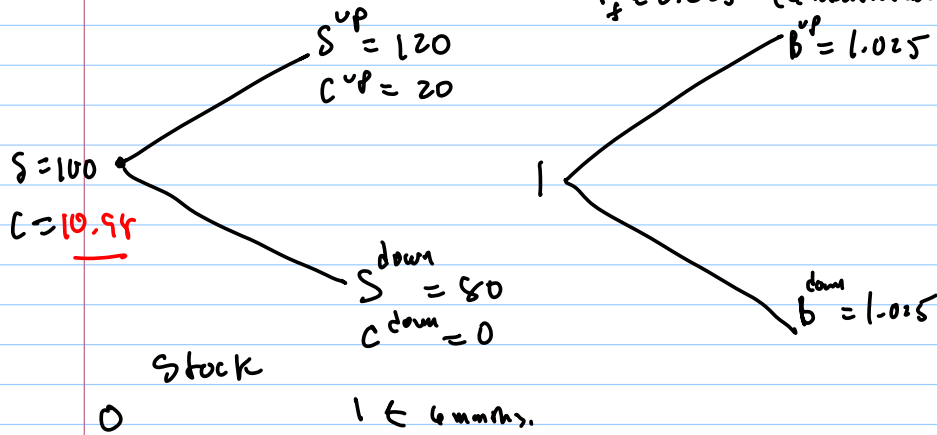 S^up = 120
C^up = 20
b^up = 1.025
S = 100
C = 10.98
1
S^down = 80
C^down = 0
b^down = 1.025
Stock
0
1 ← 6 months.